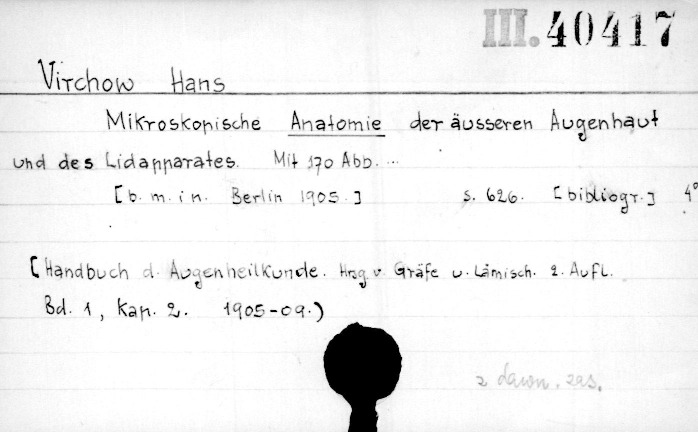 III. 40417
Virchow Hans
Mikroskopische Anatomie der äusseren Augenhaut
und des Lidapparates. Mit 170 Abb. ...
[b. m. i n. Berlin 1905.] s. 626. [bibliogr.] 4°
[Handbuch d. Augenheilkunde. Hrsg. v. Gräfe u. Sämisch. 2. Aufl.
Bd. 1, Kap. 2. 1905-09.)
z dawn. zas.